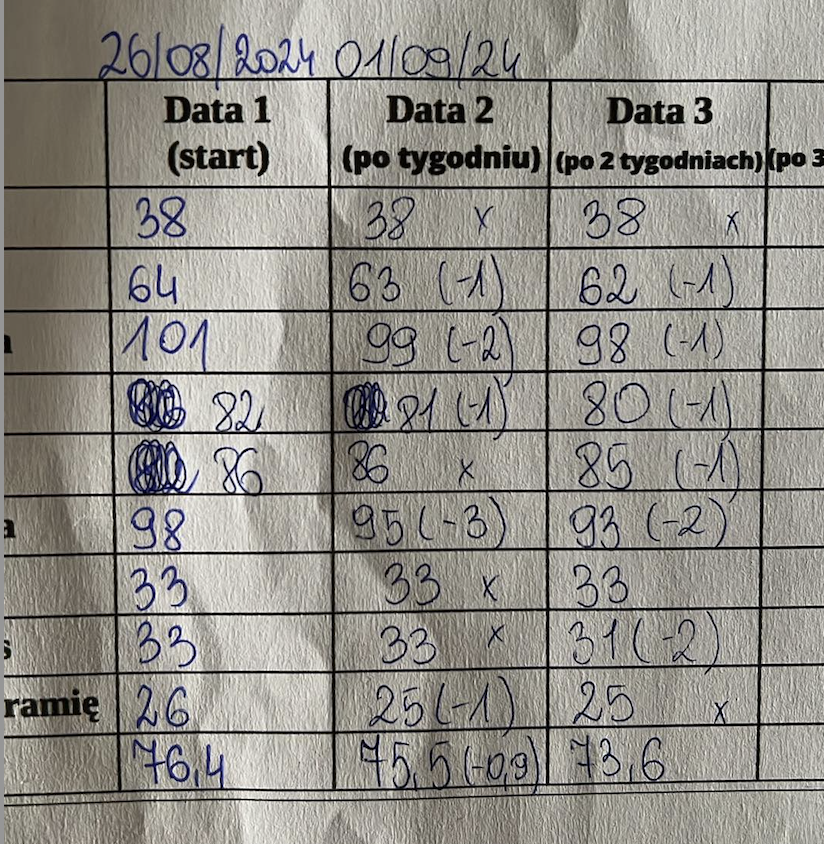 26/08/2024 01/09/24
Data 1 Data 2 Data 3
(start) (po tygodniu) (po 2 tygodniach) (po 3
38 38 x 38 x
64 63 (-1) 62 (-1)
101 99 (-2) 98 (-1)
82 81 (-1) 80 (-1)
86 86 x 85 (-1)
a 98 95 (-3) 93 (-2)
33 33 x 33
s 33 33 x 31 (-2)
ramię 26 25 (-1) 25 x
76,4 75,5 (-0,9) 73,6